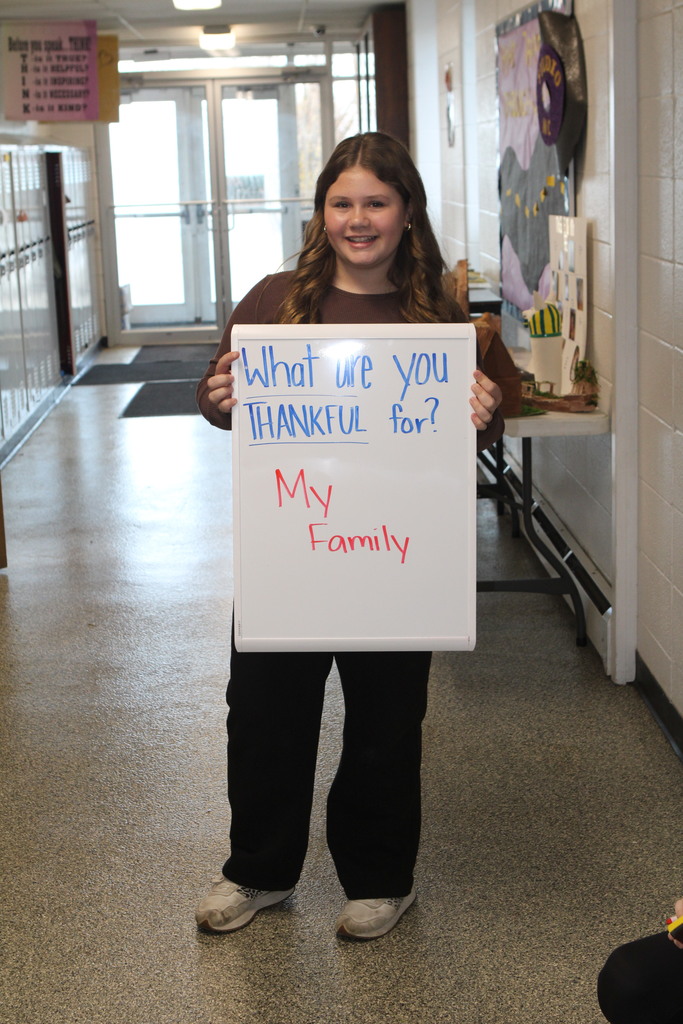 Before you speak...THINK!
T -is it TRUE?
H -is it HELPFUL?
I -is it INSPIRING?
N -is it NECESSARY?
K -is it KIND?
What are you
THANKFUL for?
My
Family